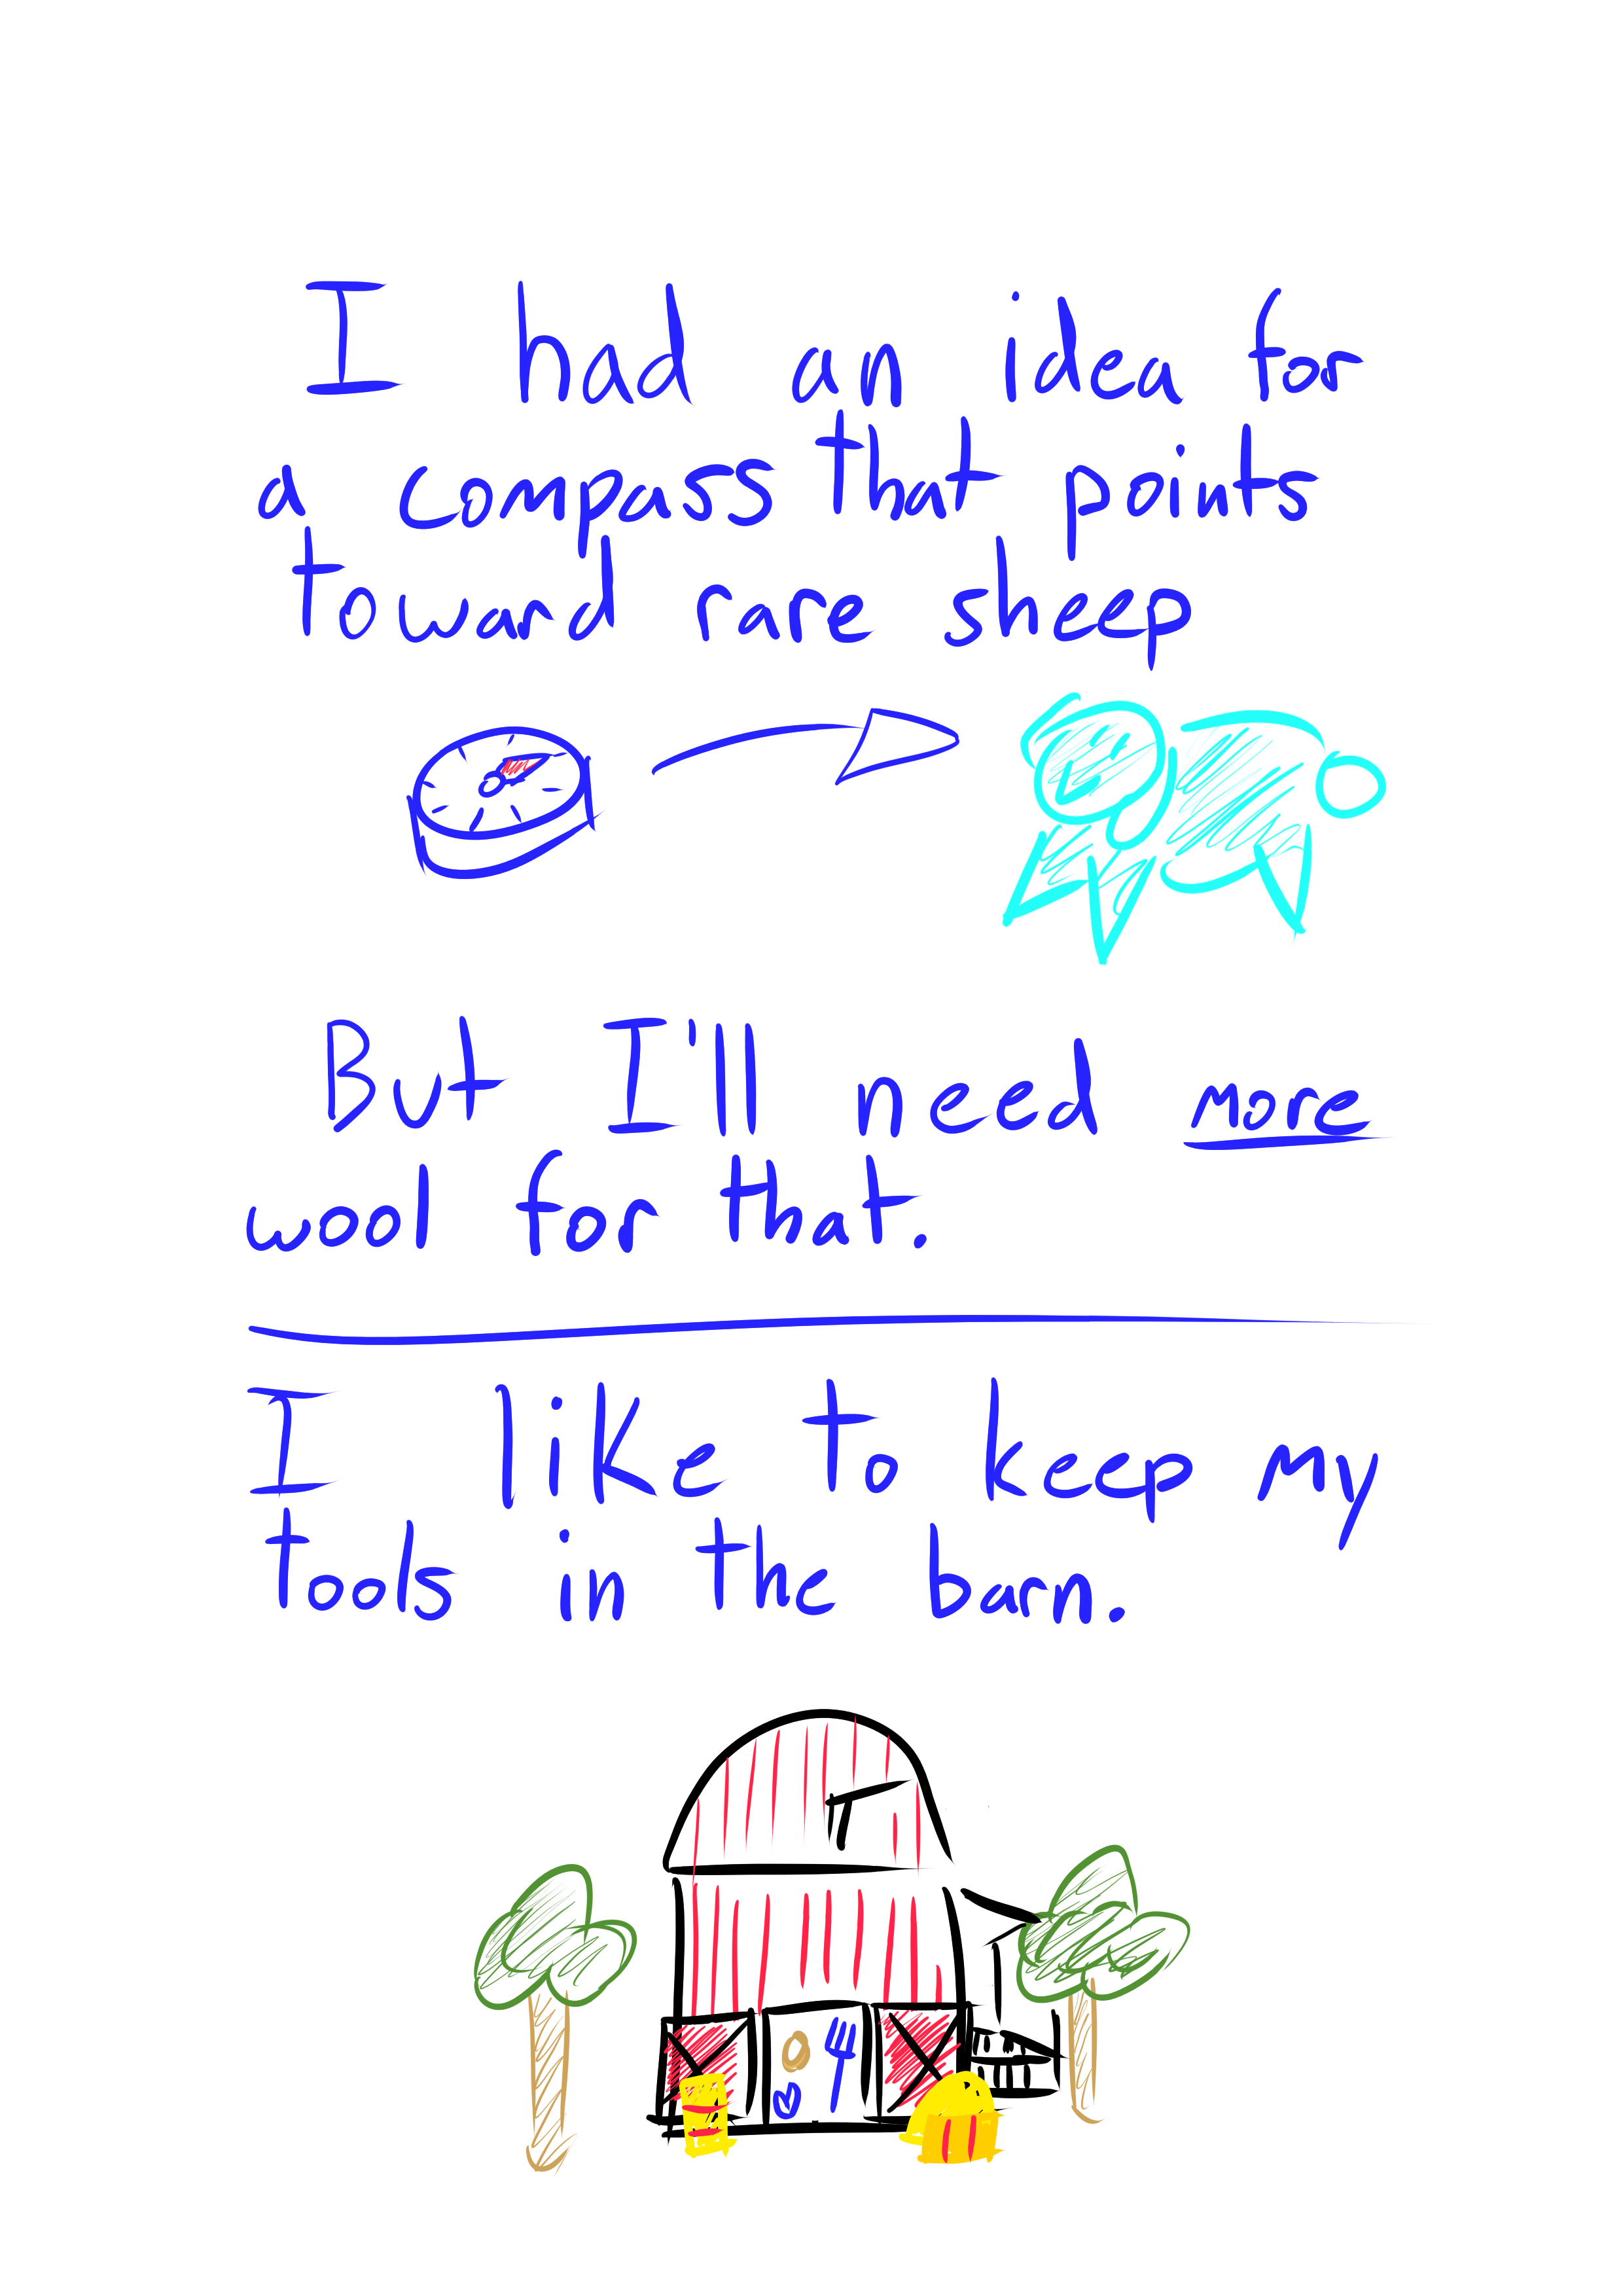 I had an idea for
a compass that points
toward rare sheep
But I'll need more
wool for that.
I like to keep my
tools in the barn.